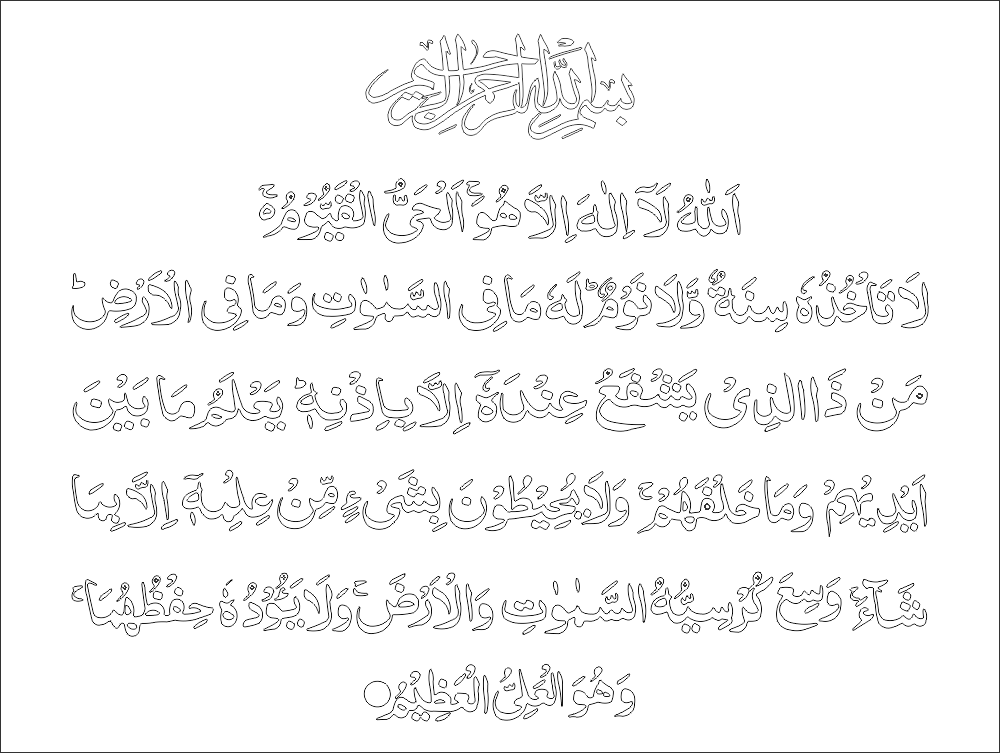 بسم الله الرحمن الرحيم
اَللّٰهُ لَآ اِلٰهَ اِلَّا هُوَۚ اَلْحَىُّ الْقَيُّوْمُ ۚ
لَا تَاْخُذُهٗ سِنَةٌ وَّلَا نَوْمٌ ؕ لَهٗ مَا فِى السَّمٰوٰتِ وَمَا فِى الْاَرْضِ ؕ
مَنْ ذَا الَّذِىْ يَشْفَعُ عِنْدَهٗۤ اِلَّا بِاِذْنِهٖ ؕ يَعْلَمُ مَا بَيْنَ
اَيْدِيْهِمْ وَمَا خَلْفَهُمْ ۚ وَلَا يُحِيْطُوْنَ بِشَىْءٍ مِّنْ عِلْمِهٖۤ اِلَّا بِمَا
شَآءَ ۚ وَسِعَ كُرْسِيُّهُ السَّمٰوٰتِ وَالْاَرْضَ ۚ وَلَا يَـُٔوْدُهٗ حِفْظُهُمَا ۚ
وَهُوَ الْعَلِىُّ الْعَظِيْمُ